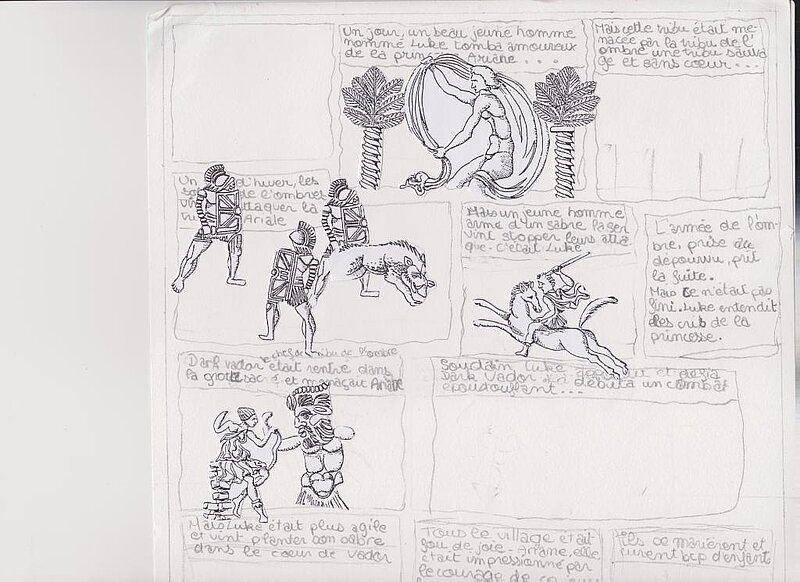 Un jour, un beau jeune homme
nommé Luke tomba amoureux
de la Ariane...
Mais cette tribu était me-
nacée par la tribu de l'
ombre une tribu sauva
ge et sans cœur...
Un d'hiver, les
de l'ombre
attaquer la
Ariale
Mais un jeune homme
armé d'un sabre laser
vint stopper leurs atta
que. c'était Luke
L'armée de l'om-
bre, prise au
dépourvu, prit
la fuite.
Mais ce n'était pas
fini. Luke entendit
des cris de la
princesse.
le chef de tribu de l'ombre
Dark vador était rentré dans
la grotte et menaçait Ariane
Soudain Luke et défia
Dark Vador débuta un combat
époustouflant...
Mais Luke était plus agile
et vint planter son sabre
dans le cœur de vador
Tous le village était
fou de joie. Ariane, elle
était impressionné par
le courage de ce
Ils se marièrent et
eurent bcp d'enfant